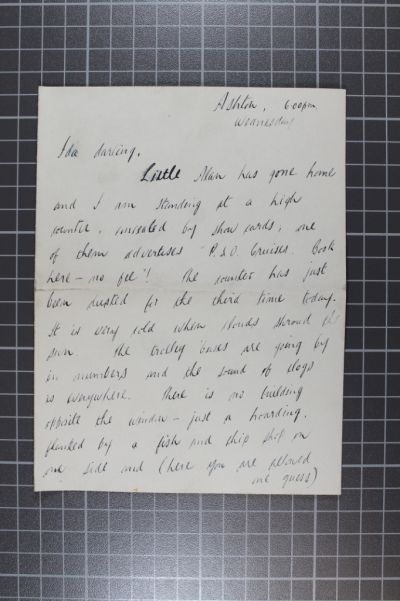 Ashton, 6.00pm
Wednesday
Ida darling,
Little Man has gone home
and I am standing at a high
counter, surrounded by show cards, one
of them advertises "P. & O. Cruises. Book
here - no fee"! The counter has just
been dusted for the third time today.
It is very cold when clouds shroud the
sun. The trolley 'buses are going by
in numbers and the sound of clogs
is everywhere. There is no building
opposite the window - just a hoarding,
flanked by a fish and chip shop on
one side and (here you are allowed
one guess)